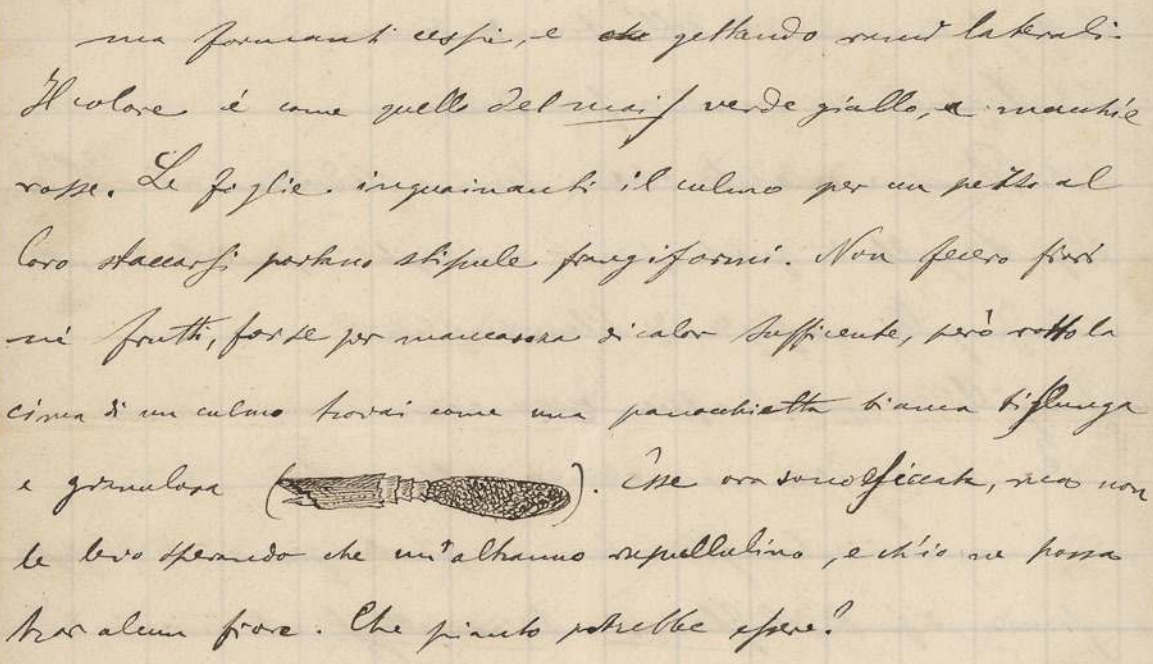 ma formanti cespi, e gettando rami laterali.
Il colore é come quello del mais verde giallo, a macchie
rosse. Le foglie inguainanti il culmo per un pezzo al
loro staccarsi portano stipule frangiformi. Non fecero fiori
né frutti, forse per mancanza di calor sufficente, però rotto la
cima di un culmo trovai come una panocchietta bianca bislunga
e granulosa ( ). Esse ora sono seccate, ma non
le levo sperando che un'altranno ripullulino, e ch'io ne possa
trar alcun fiore. Che pianta potrebbe essere?